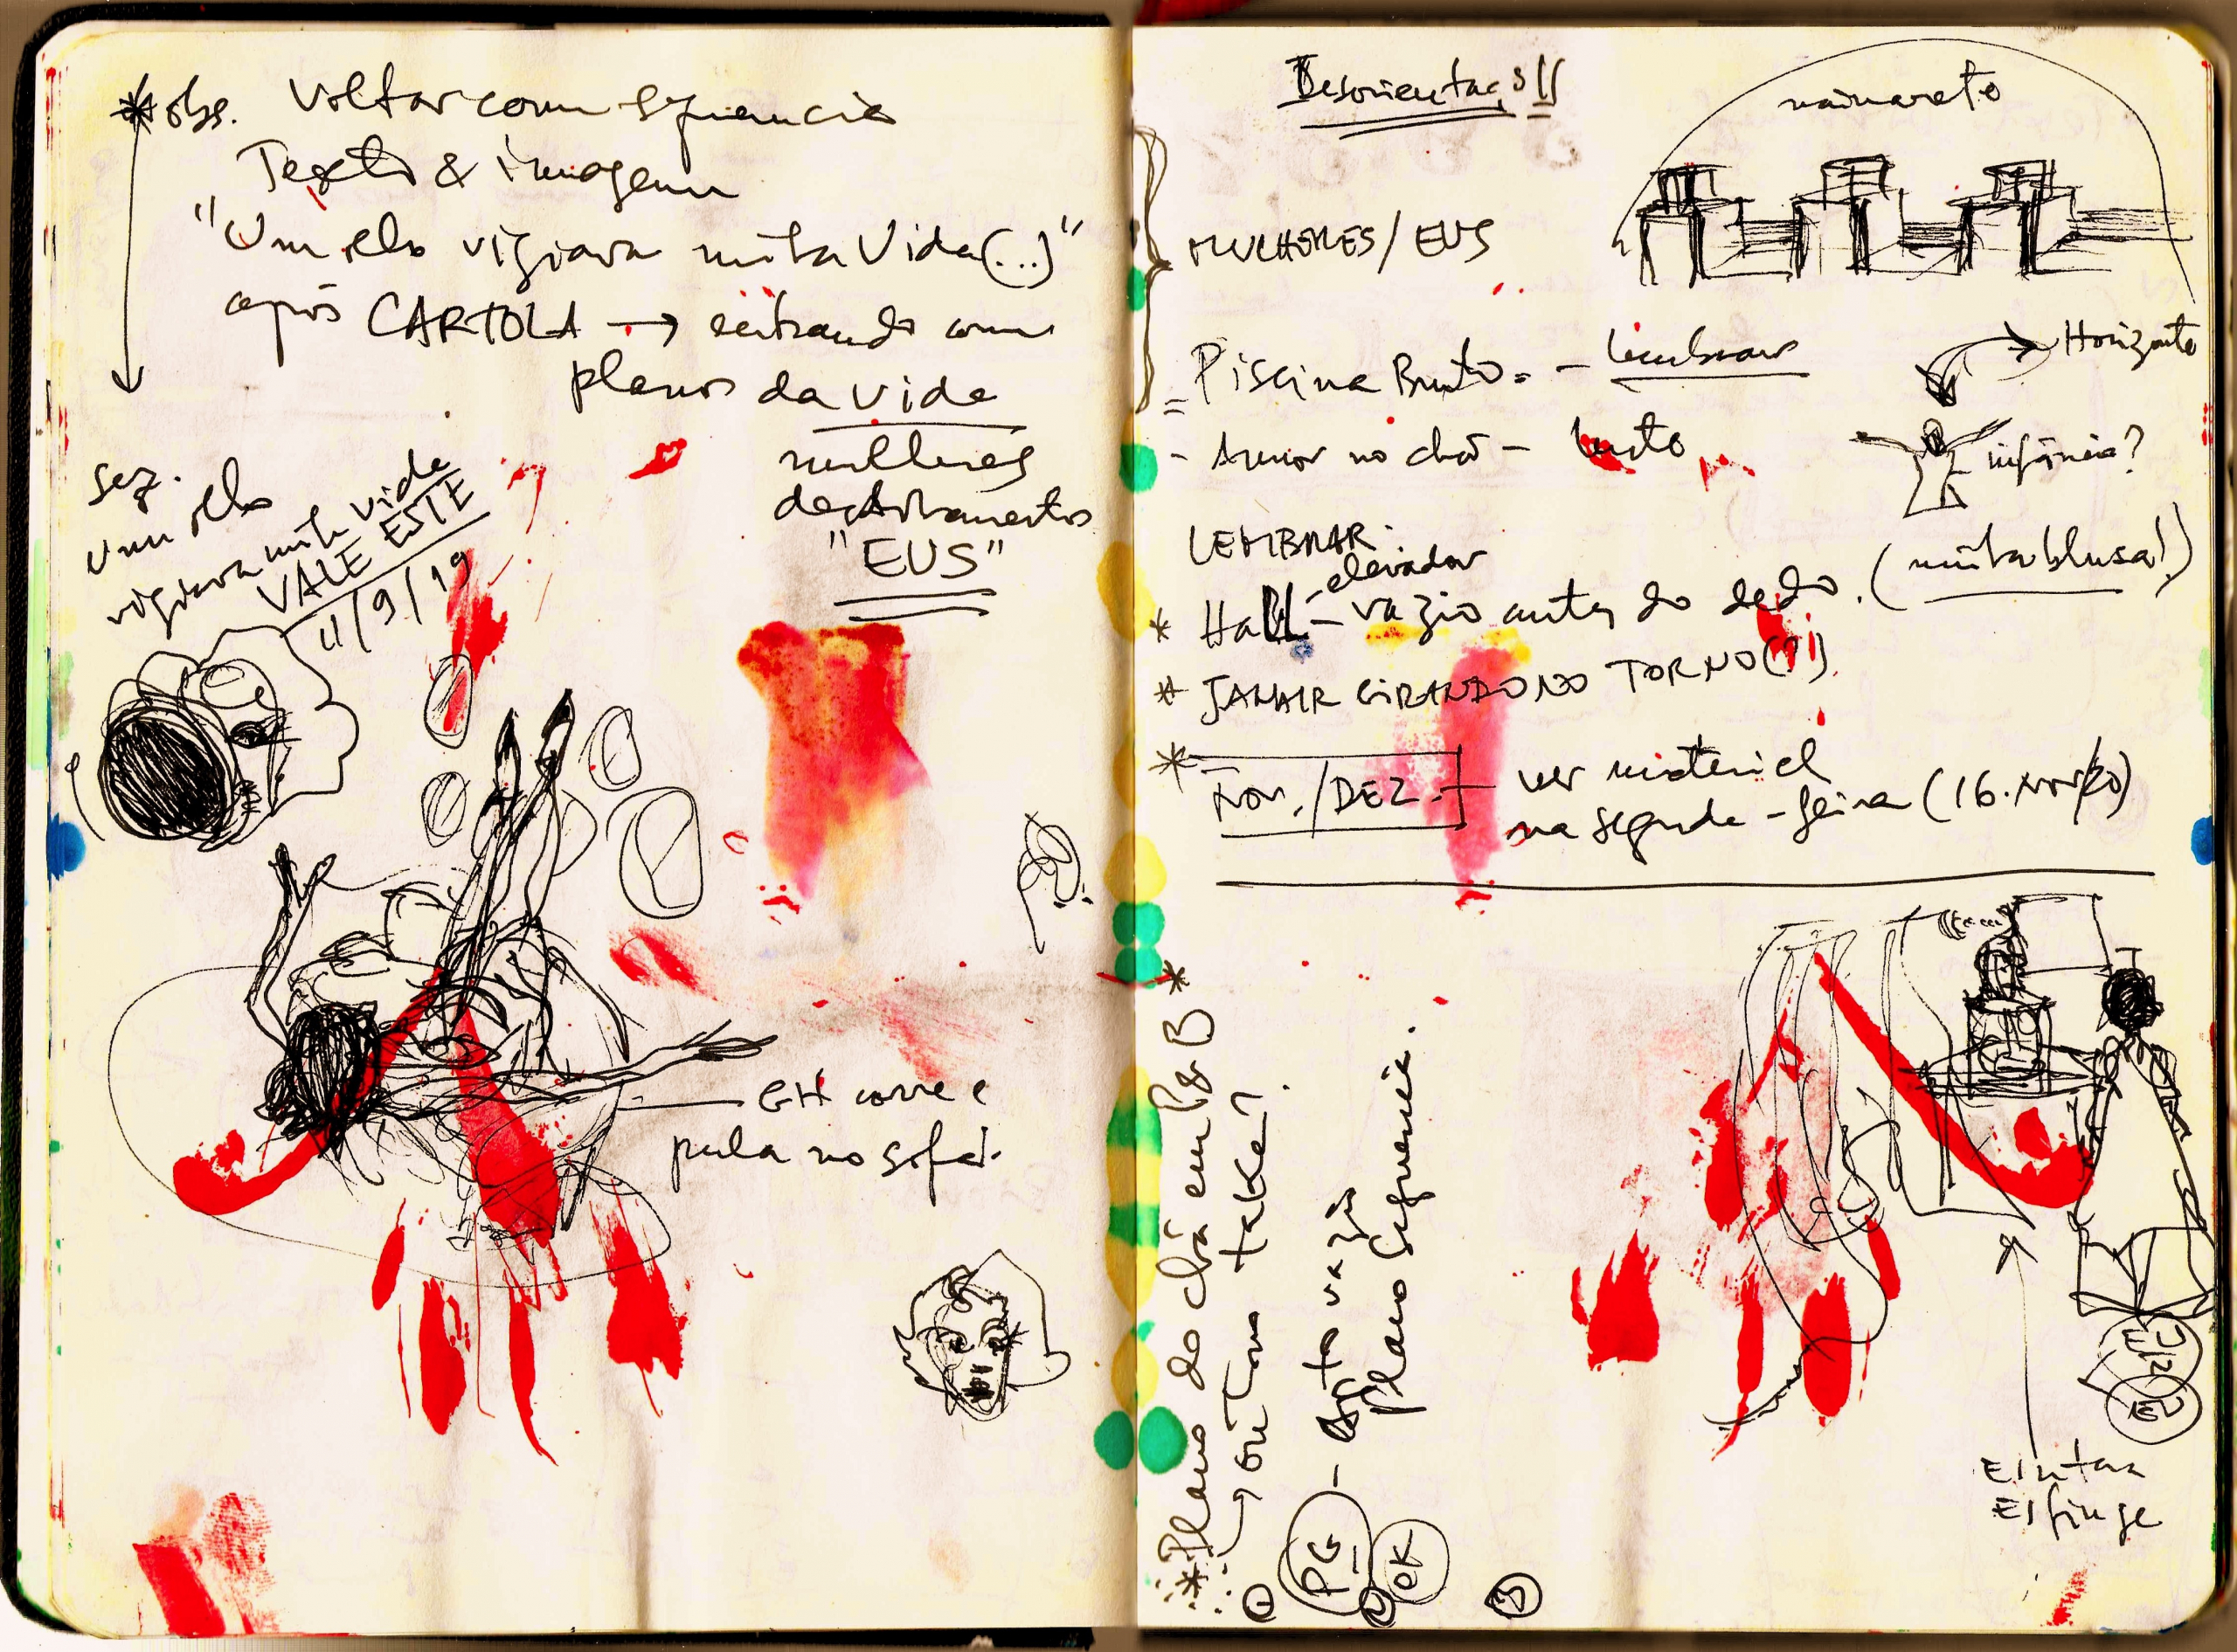 * obs. Voltar com sequencia
Texto & imagem
"Um olho vigiava minha Vida (...)"
após CARTOLA → entrando com
planos da vida
mulheres
desdobramentos
"EUS"
seq.
um olho
vigiava minha vida
VALE ESTE
11/9/19
GH corre e
pula no sofá.
minareto
MULHERES/EUS
Piscina Bruto = - lembrar
Horizonte
- Amor no chão - luto
infância?
LEMBRAR:
elevador
* Hall - vazio antes do dedo. (minha blusa!)
* JANAIR GIRANDO NO TORNO(?)
* Nov./DEZ. - ver material
na segunda-feira (16.Nov/20)
* Plano do chá em P&B
→ outro take?
1
PG - vazio
Plano Sequencia.
OK
2
3
Eintra
Esfinge